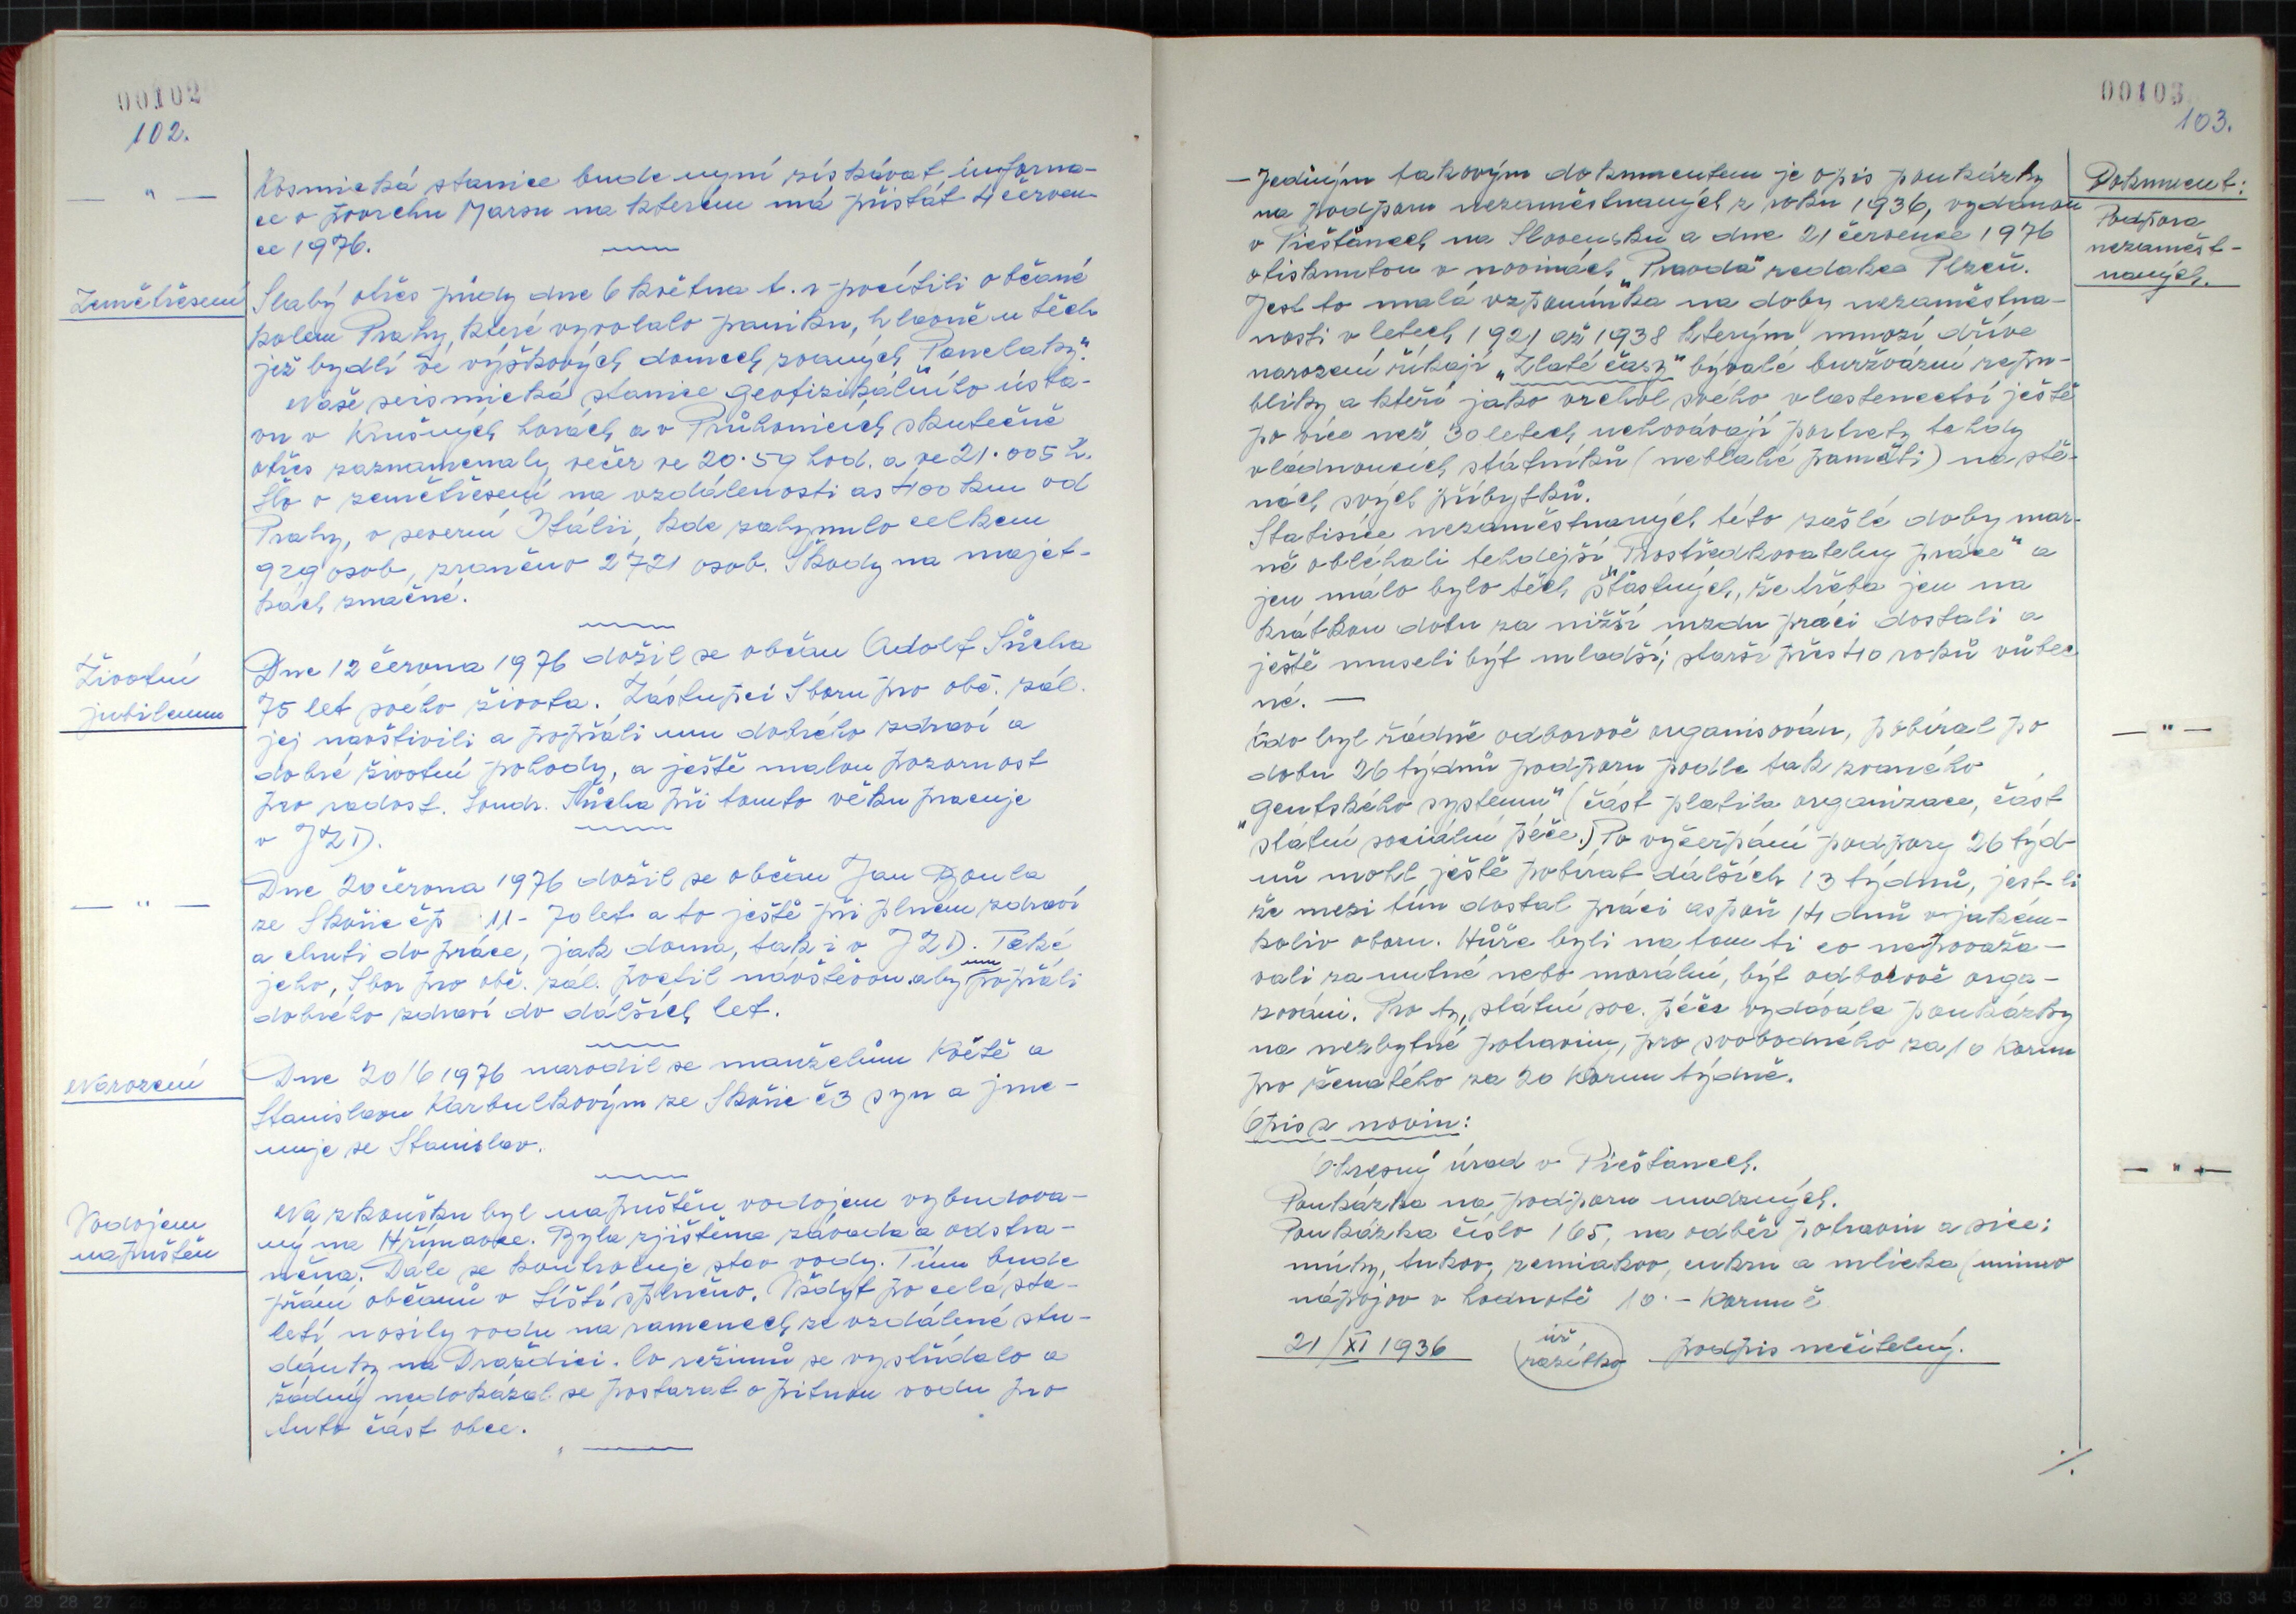 00102
102.
— " —
Kosmická stanice bude nyní získávat informa-
ce o povrchu Marsu na kterém má přistát 4 červen-
ce 1976.
Zemětřesení
Slabý otřes půdy dne 6 května t. r. pocítili občané
kolem Prahy, které vyvolalo paniku, hlavně u těch
jež bydlí ve výškových domech zvaných "Paneláky".
Naše seismická stanice geofizikálního ústa-
vu v Krušných horách a v Průhonicích skutečně
otřes zaznamenaly večer ve 20.59 hod. a ve 21.005 h.
Šlo o zemětřesení na vzdálenosti as 400 km od
Prahy, v severní Itálii, kde zahynulo celkem
929 osob, zraněno 2721 osob. Škody na majet-
kách značné.
Životní
jubileum
Dne 12 června 1976 dožil se občan Adolf Sůcha
75 let svého života. Zástupci Sboru pro obč. zál.
jej navštívili a popřáli mu dobrého zdraví a
dobré životní pohody, a ještě malou pozornost
pro radost. Soudr. Sůcha při tomto věku pracuje
v JZD.
— " —
Dne 20 června 1976 dožil se občan Jan Boula
ze Skořic čp 11 - 70 let a to ještě při plném zdraví
a chuti do práce, jak doma, tak i v JZD. Také
jeho, Sbor pro obč. zál. poctil návštěvou aby mu popřáli
dobrého zdraví do dalších let.
Narození
Dne 20/6 1976 narodil se manželům Květě a
Stanislavu Karbulkovým ze Skořic č 3 syn a jme-
nuje se Stanislav.
Vodojem
napuštěn
Na zkoušku byl napuštěn vodojem vybudova-
ný na Hřímavce. Byla zjištěna závada a odstra-
něna. Dále se kontroluje stav vody. Tím bude
přání občanů v Líští splněno. Vždyť po celá sto-
letí nosily vodu na ramenech ze vzdálené stu-
dánky na Draždici. Co režimů se vystřídalo a
žádný nedokázal se postarat o pitnou vodu pro
tuto část obce.
00103
103.
Dokument:
Podpora
nezaměst-
naných.
— Jedním takovým dokumentem je opis poukázky
na podporu nezaměstnaných z roku 1936, vydanou
v Piešťanech na Slovensku a dne 21 července 1976
otisknutou v novinách "Pravda" redakce Plzeň.
Jest to malá vzpomínka na doby nezaměstna-
nosti v letech 1921 až 1938 kterým mnozí, dříve
narození říkají "Zlaté časy" bývalé buržoazní repu-
bliky a kteří jako vrchol svého vlastenectví ještě
po více než 30 letech uchovávají portrety tehdy
vládnoucích státníků (neblahé paměti) na stě-
nách svých příbytků.
Statisíce nezaměstnaných této zašlé doby mar-
ně obléhali tehdejší "Prostředkovatelny práce" a
jen málo bylo těch šťastných, že třeba jen na
krátkou dobu za nižší mzdu práci dostali a
ještě museli být mladší; starší přes 40 roků vůbec
né. —
— " —
Kdo byl řádně odborově organisován, pobíral po
dobu 26 týdnů podporu podle tak zvaného
"gentského systemu" (část platila organizace, část
státní sociální péče.) Po vyčerpání podpory 26 týd-
nů mohl ještě pobírat dalších 13 týdnů, jest-li
že mezi tím dostal práci aspoň 14 dnů v jakém-
koliv oboru. Hůře byli na tom ti co nepovažo-
vali za nutné nebo morální, být odborově orga-
zováni. Pro ty, státní soc. péče vydávala poukázky
na nezbytné potraviny, pro svobodného za 10 Korun
pro ženatého za 20 Korun týdně.
Opis z novin:
— " —
Okresný úrad v Piešťanech.
Poukázka na podporu nudzných.
Poukázka číslo 165, na odběr potravin a sice:
múky, tukov, zemiakov, cukru a mlieka (mimo
nápojov v hodnotě 10.- Korun č
21/XI 1936
úř.
razítko
podpis nečitelný.
./.